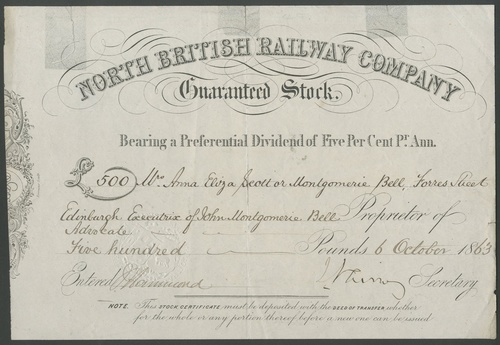 NORTH BRITISH RAILWAY COMPANY
Guaranteed Stock.
Bearing a Preferential Dividend of Five Per Cent Pr. Ann.
£500 Mrs. Anna Eliza Scott or Montgomerie Bell, Forres Street
Edinburgh Executrix of John Montgomerie Bell Proprietor of
Advocate
Five hundred Pounds 6 October 1863
Entered Secretary
NOTE. This STOCK CERTIFICATE must be deposited with the DEED OF TRANSFER whether
for the whole or any portion thereof before a new one can be issued